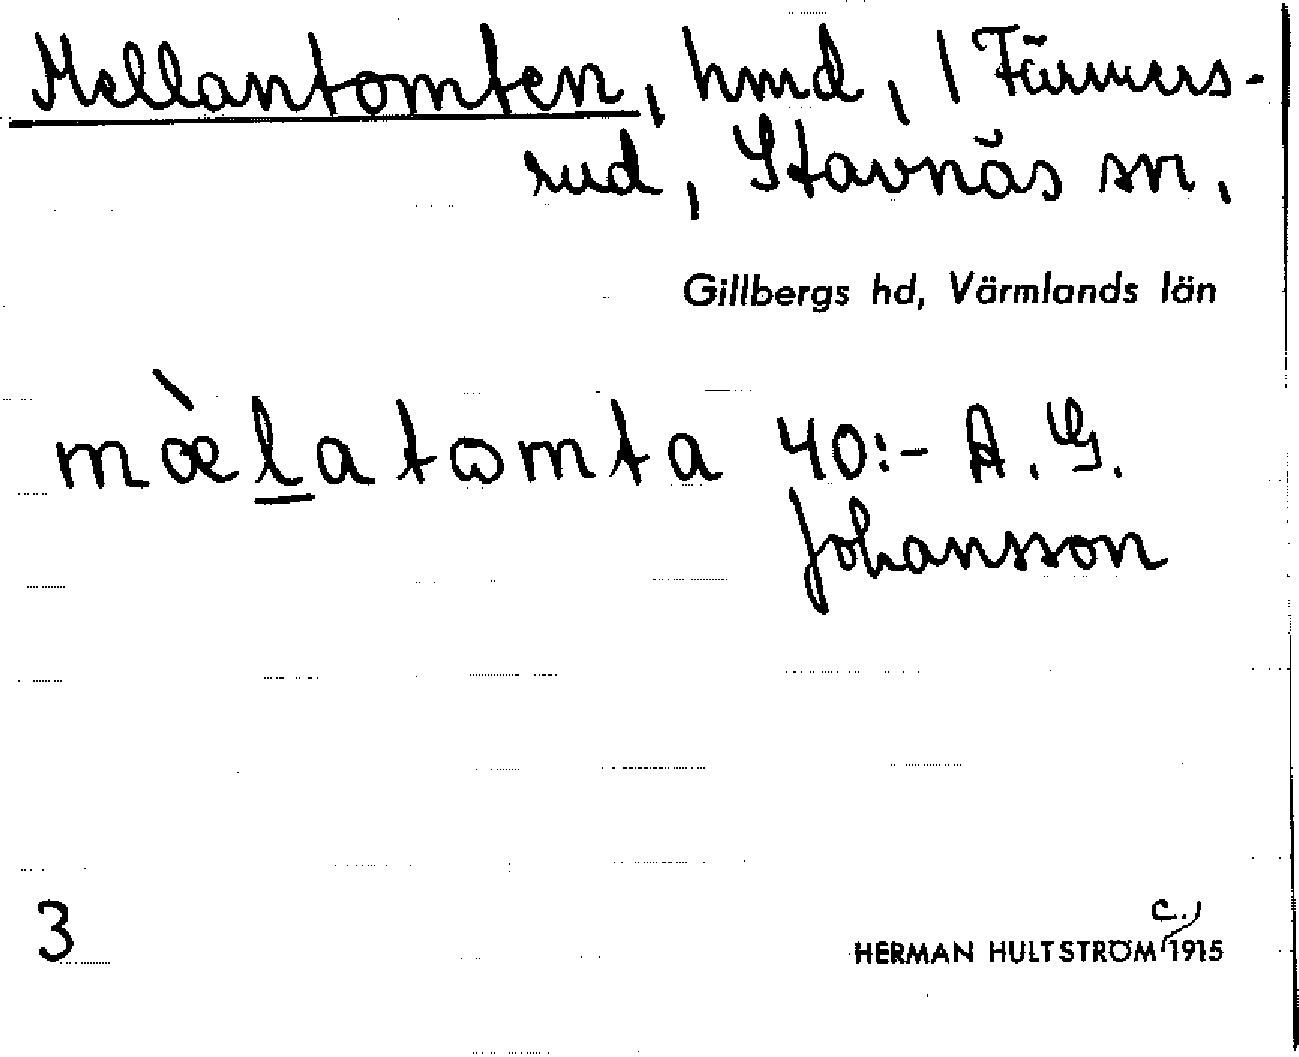 Mellantomten, hmd, 1 Färmers-
rud, Stavnäs sn.
Gillbergs hd, Värmlands län
mὰlatωmta 40:- A. G.
Johansson
3
c.,
HERMAN HULTSTRÖM 1915